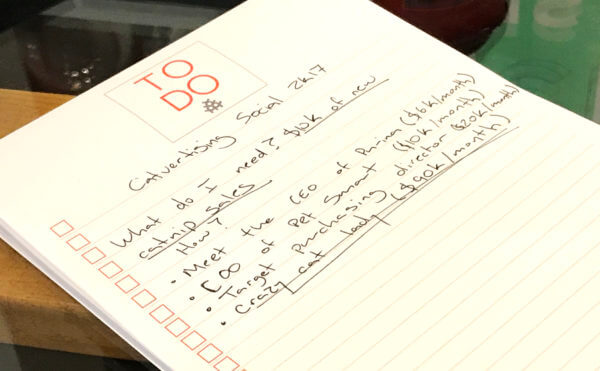 TO
DO
Catvertising Social 2k17
What do I need? $10k of new
catnip sales
How?
• Meet the CEO of Purina ($6k/month)
• COO of Pet Smart ($10k/month)
• Target purchasing director ($20k/month)
• Crazy cat lady ($90k/month)